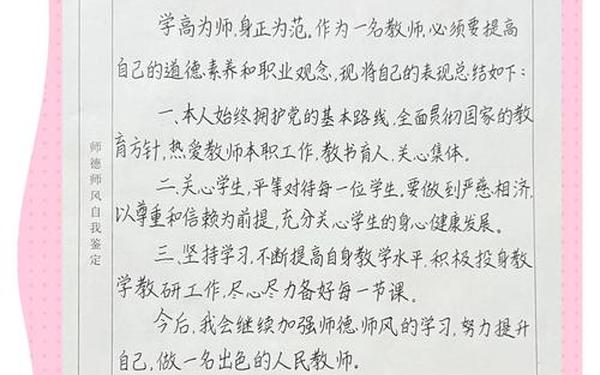 师德师风自我鉴定
学高为师,身正为范。作为一名教师,必须要提高
自己的道德素养和职业观念,现将自己的表现总结如下:
一、本人始终拥护党的基本路线,全面贯彻国家的教
育方针,热爱教师本职工作,教书育人,关心集体。
二、关心学生,平等对待每一位学生。要做到严慈相济,
以尊重和信赖为前提,充分关心学生的身心健康发展。
三、坚持学习,不断提高自身教学水平,积极投身教
学教研工作,尽心尽力备好每一节课。
今后,我会继续加强师德师风的学习,努力提升
自己,做一名出色的人民教师。